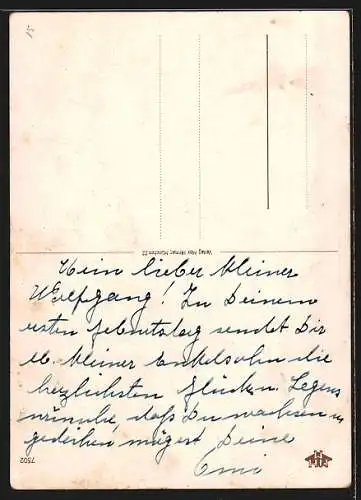 51
Verlag Max Hirmer, München 22
Mein lieber kleiner
Wolfgang! Zu Deinem
ersten Geburtstag sendet Dir
als kleiner Enkelsohn die
herzlichsten Glück u. Segens
wünsche, daß Du wachsen u
gedeihen mögest Deine
Omi
7502